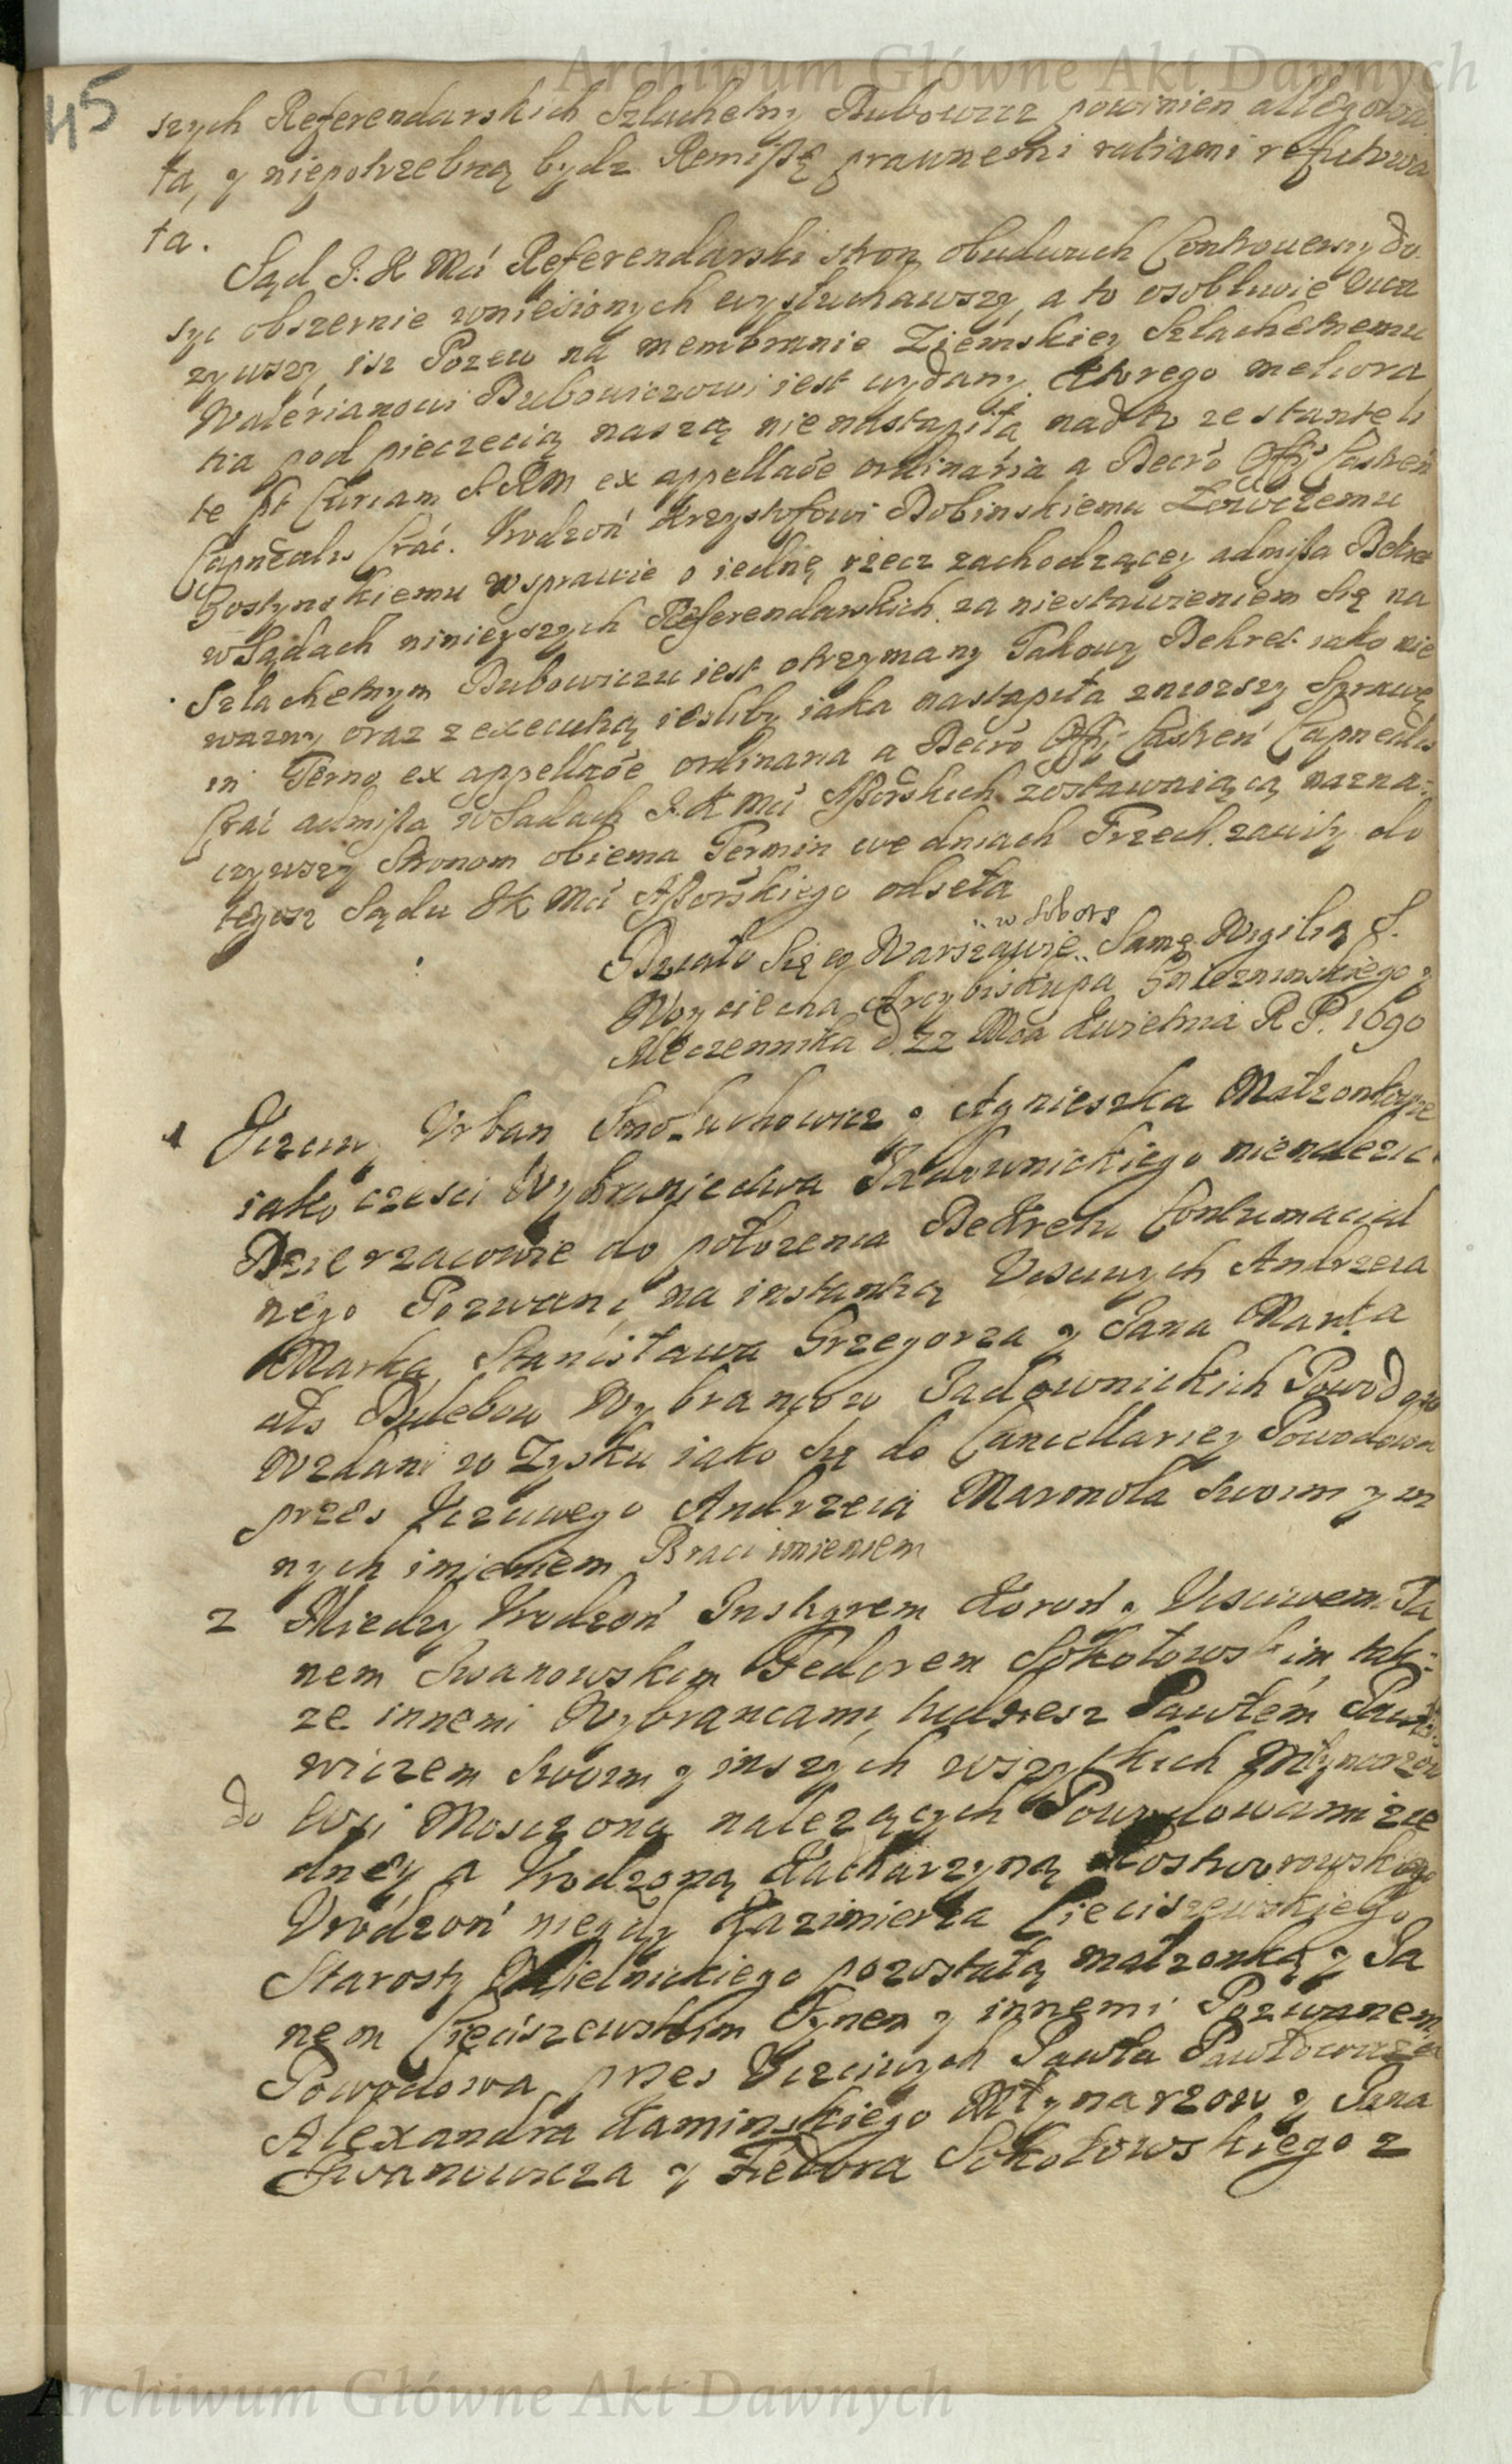 Archiwum Główne Akt Dawnych
45
szych Referendarskich Szlachetny Bubowicz powinien allegowa
ła, y niepotrzebną bydz Remissę prawnemi ratiami refutowa
ła.
Sąd J. K Mći Referendarski stron obudwuch Controwersyi do
syć obszernie wniesionych wysłuchawszy, a to osobliwie uwa
zywszy, isz Pozew na membranie Ziemskiey Szlachetnemu
Walerianowi Bubowiczowi iest wydany, ktorego meliora
tia pod pieczęcią naszą nie nastąpiła nadto ze stante li
te pt Curiam S. RM ex appellaõe ordinaria a Decrõ Offy Castren
Capnealis Crac. Urodzoń Krzysztofowi Bobinskiemu Łowczemu
Gostynskiemu w sprawie o iednę rzecz zachodzącey admissa Dekre
w Sądach ninieyszych Referendarskich za niestawieniem się na
Szlachetnym Bubowiczu iest otrzymany Takowy Dekret iako nie
wazny oraz z executią iesliby iaka nastąpiła zniozszy Sprawę
in Termo ex appellaõe ordinaria a Decrõ Offy Castreń Capnealis
Crac admissa w Sadach J. K Mći Assorskich zostawaiącą nazna-
czywszy Stronom obiema Termin we dniach Trzech zawity do
tegosz Sądu JK Mći Assorskiego odseła
w Sobotę
Działo Się w Warszawie Samą Wigilią S.
Woyciecha Arcybiskupa Gniezninskiego y
Męczennika d. 22 Mca Kwietnia R P. 1690
1 Uczciwy Urban y Agnieszka Małzonkowie
iako czesci Wybraniectwa Jadownickiego nienalezići
Dzierzacowie do połozenia Dekretu Contumacial
nego Pozwani na instantią Uczciwych Andrzeia
Marka, Stanisława Grzegorza y Jana
als Wybrancow Jadownickich Powodow
Wzdani w Zysku iako się do Cancellariey Powodowa
przes Uczciwego Andrzeia swoim y in
nych imieniem Braci imieniem
2 Miedzy Urodzoń Instigrem Koroń y Uczciwem Ja
nem Iwanowskim Fedorem Sokołowskim tak-
ze innemi Wybrancami, tudziesz Pawłem Pawło
wiczem swoim y inszych wszytkich Młynarzow
do Wsi Mosczoną nalezących Powodowami zie
dney a Urodzoną Katharzyną
Urodzoń niegdy Kazimierza Cieciszewskiego
Starosty Mielnickiego pozostałą małzonką y Ja
nem Cieciszewskim Synem y innemi Pozwanemi
Powodowa przes Uczciwych Pawła Pawłowicza
Alexandra Kaminskiego Młynarzow y Jana
Iwanowicza y Fedora Sokołowskiego z
Archiwum Główne Akt Dawnych